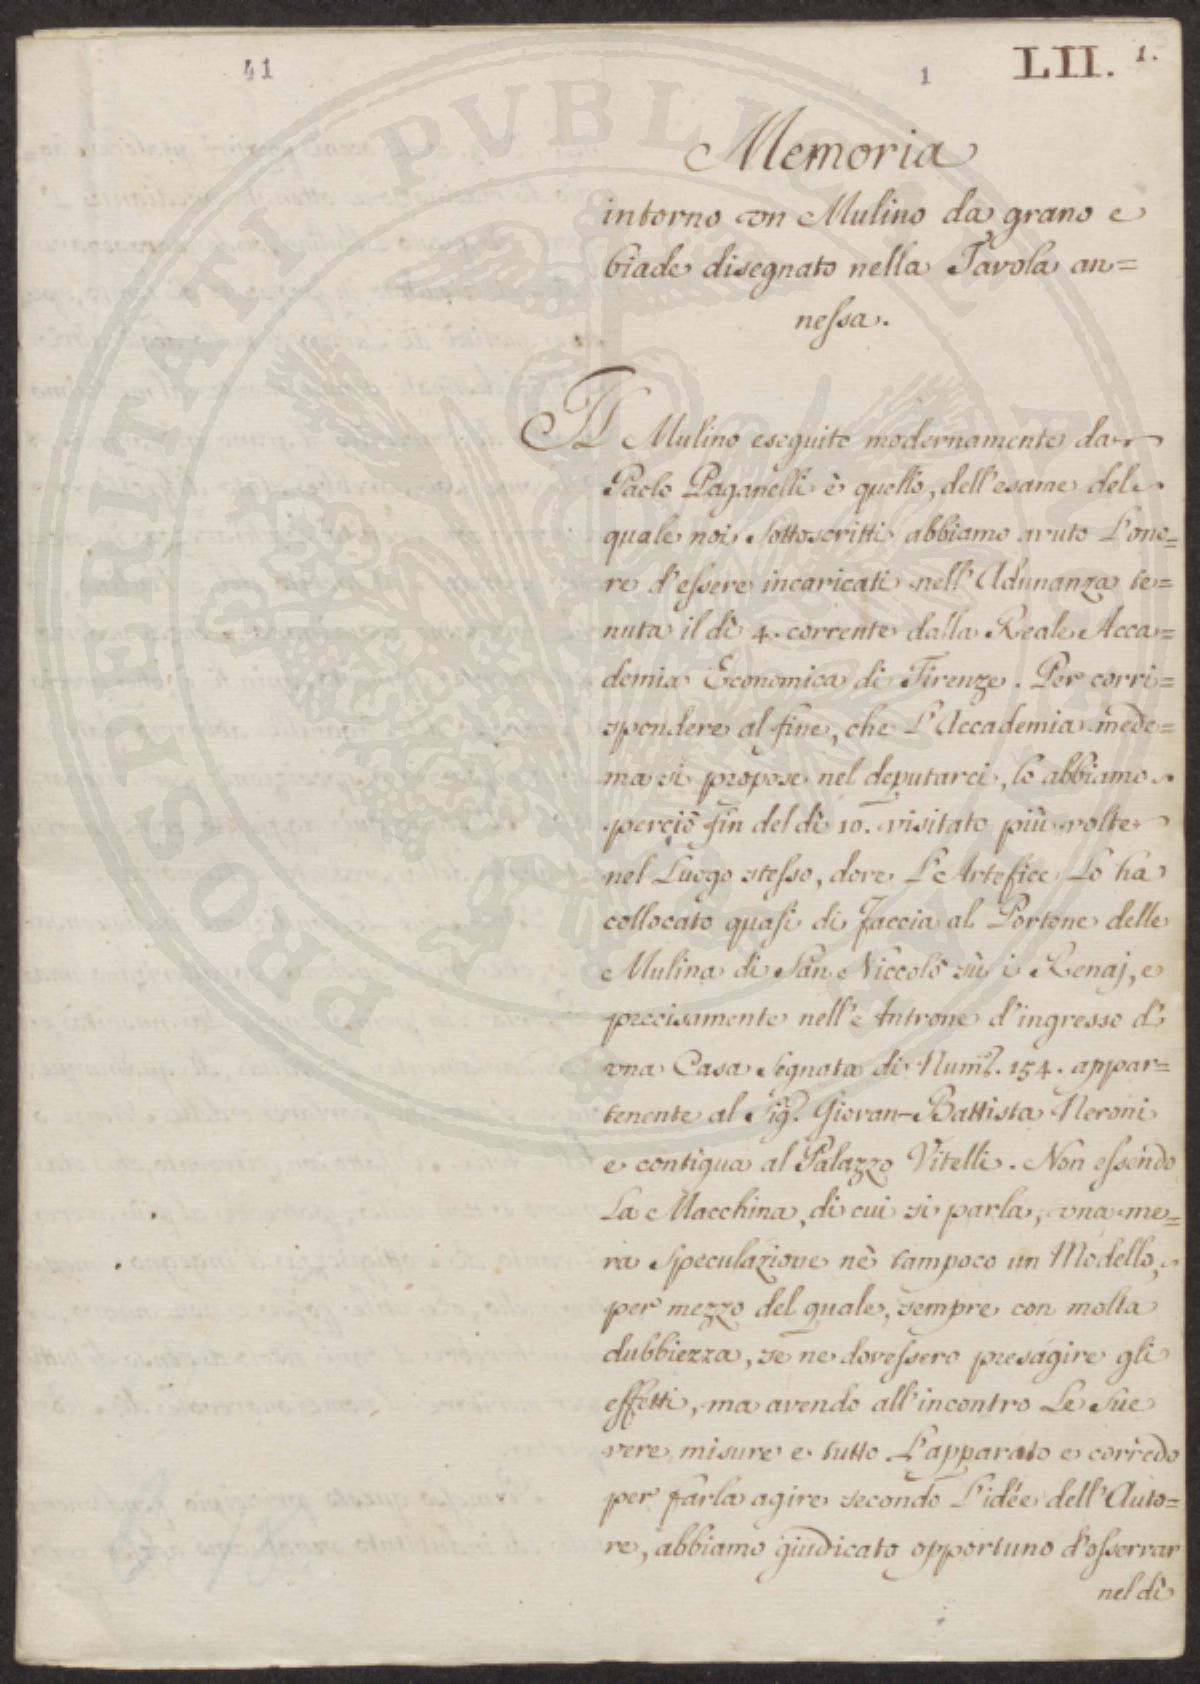 41
1
LII. 1.
Memoria
intorno un Mulino da grano e
biade disegnato nella Tavola an=
nessa.
Il Mulino eseguito modernamente da
Paolo Paganelli è quello, dell'esame del
quale noi Sottoscritti abbiamo avuto l'ono=
re d'essere incaricati nell'Adunanza te=
nuta il dì 4. corrente dalla Reale Acca=
demia Economica di Firenze. Per corri=
spondere al fine, che l'Accademia mede=
ma si propose nel deputarci, lo abbiamo
perciò fin del dì 10. visitato più volte
nel Luogo stesso, dove l'Artefice Lo ha
collocato quasi di faccia al Portone delle
Mulina di San Niccolò sù i Renaj, e
precisamente nell'Antrone d'ingresso d'
una Casa Segnata di Num. 154. appar=
tenente al Sig. Giovan-Battista Neroni
e contigua al Palazzo Vitelli. Non essendo
La Macchina, di cui si parla, una me=
ra Speculazione nè tampoco un Modello,
per mezzo del quale, sempre con molta
dubbiezza, se ne dovessero presagire gli
effetti, ma avendo all'incontro Le Sue
vere misure e tutto L'apparato e corredo
per farla agire secondo L'idée dell'Auto=
re, abbiamo giudicato opportuno d'osservar
nel dì
PROSPERITATI PUBLICAE